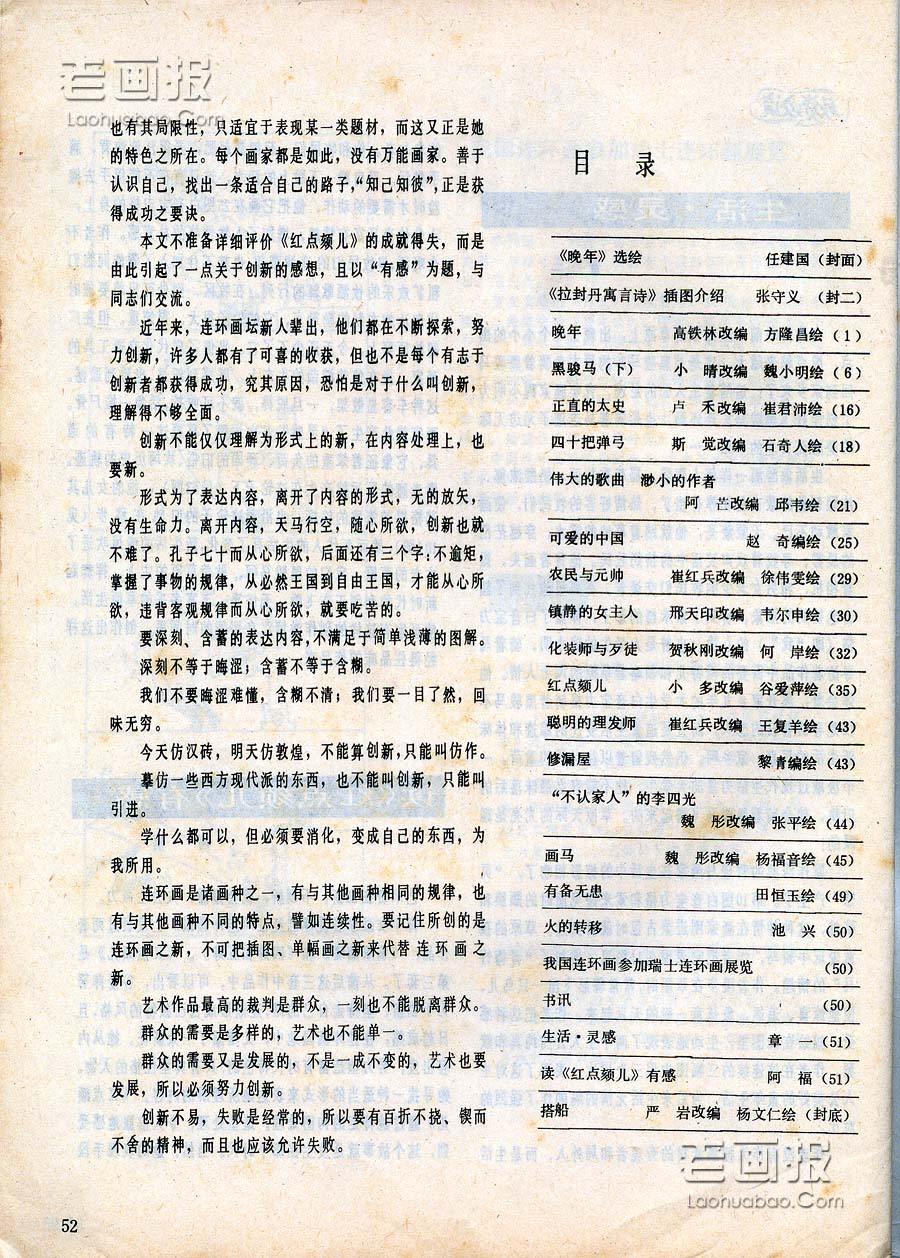 老画报
Laohuabao.Com
也有其局限性，只适宜于表现某一类题材，而这又正是她
的特色之所在。每个画家都是如此，没有万能画家。善于
认识自己，找出一条适合自己的路子，“知己知彼”，正是获
得成功之要诀。
本文不准备详细评价《红点颏儿》的成就得失，而是
由此引起了一点关于创新的感想，且以“有感”为题，与
同志们交流。
近年来，连环画坛新人辈出，他们都在不断探索，努
力创新，许多人都有了可喜的收获，但也不是每个有志于
创新者都获得成功，究其原因，恐怕是对于什么叫创新，
理解得不够全面。
创新不能仅仅理解为形式上的新，在内容处理上，也
要新。
形式为了表达内容，离开了内容的形式，无的放矢，
没有生命力。离开内容，天马行空，随心所欲，创新也就
不难了。孔子七十而从心所欲，后面还有三个字：不逾矩，
掌握了事物的规律，从必然王国到自由王国，才能从心所
欲，违背客观规律而从心所欲，就要吃苦的。
要深刻、含蓄的表达内容，不满足于简单浅薄的图解。
深刻不等于晦涩；含蓄不等于含糊。
我们不要晦涩难懂，含糊不清；我们要一目了然，回
味无穷。
今天仿汉砖，明天仿敦煌，不能算创新，只能叫仿作。
摹仿一些西方现代派的东西，也不能叫创新，只能叫
引进。
学什么都可以，但必须要消化，变成自己的东西，为
我所用。
连环画是诸画种之一，有与其他画种相同的规律，也
有与其他画种不同的特点，譬如连续性。要记住所创的是
连环画之新，不可把插图、单幅画之新来代替连环画之
新。
艺术作品最高的裁判是群众，一刻也不能脱离群众。
群众的需要是多样的，艺术也不能单一。
群众的需要又是发展的，不是一成不变的，艺术也要
发展，所以必须努力创新。
创新不易，失败是经常的，所以要有百折不挠、锲而
不舍的精神，而且也应该允许失败。
52
目 录
《晚年》选绘 任建国（封面）
《拉封丹寓言诗》插图介绍 张守义（封二）
晚年 高铁林改编 方隆昌绘（1）
黑骏马（下） 小 晴改编 魏小明绘（6）
正直的太史 卢 禾改编 崔君沛绘（16）
四十把弹弓 斯 觉改编 石奇人绘（18）
伟大的歌曲 渺小的作者
阿 芒改编 邱韦绘（21）
可爱的中国 赵 奇编绘（25）
农民与元帅 崔红兵改编 徐伟雯绘（29）
镇静的女主人 邢天印改编 韦尔申绘（30）
化装师与歹徒 贺秋刚改编 何 岸绘（32）
红点颏儿 小 多改编 谷爱萍绘（35）
聪明的理发师 崔红兵改编 王复羊绘（43）
修漏屋 黎青编绘（43）
“不认家人”的李四光
魏 彤改编 张平绘（44）
画马 魏 彤改编 杨福音绘（45）
有备无患 田恒玉绘（49）
火的转移 池 兴（50）
我国连环画参加瑞士连环画展览 （50）
书讯 （50）
生活·灵感 章 一（51）
读《红点颏儿》有感 阿 福（51）
搭船 严 岩改编 杨文仁绘（封底）
老画报
Laohuabao.Com